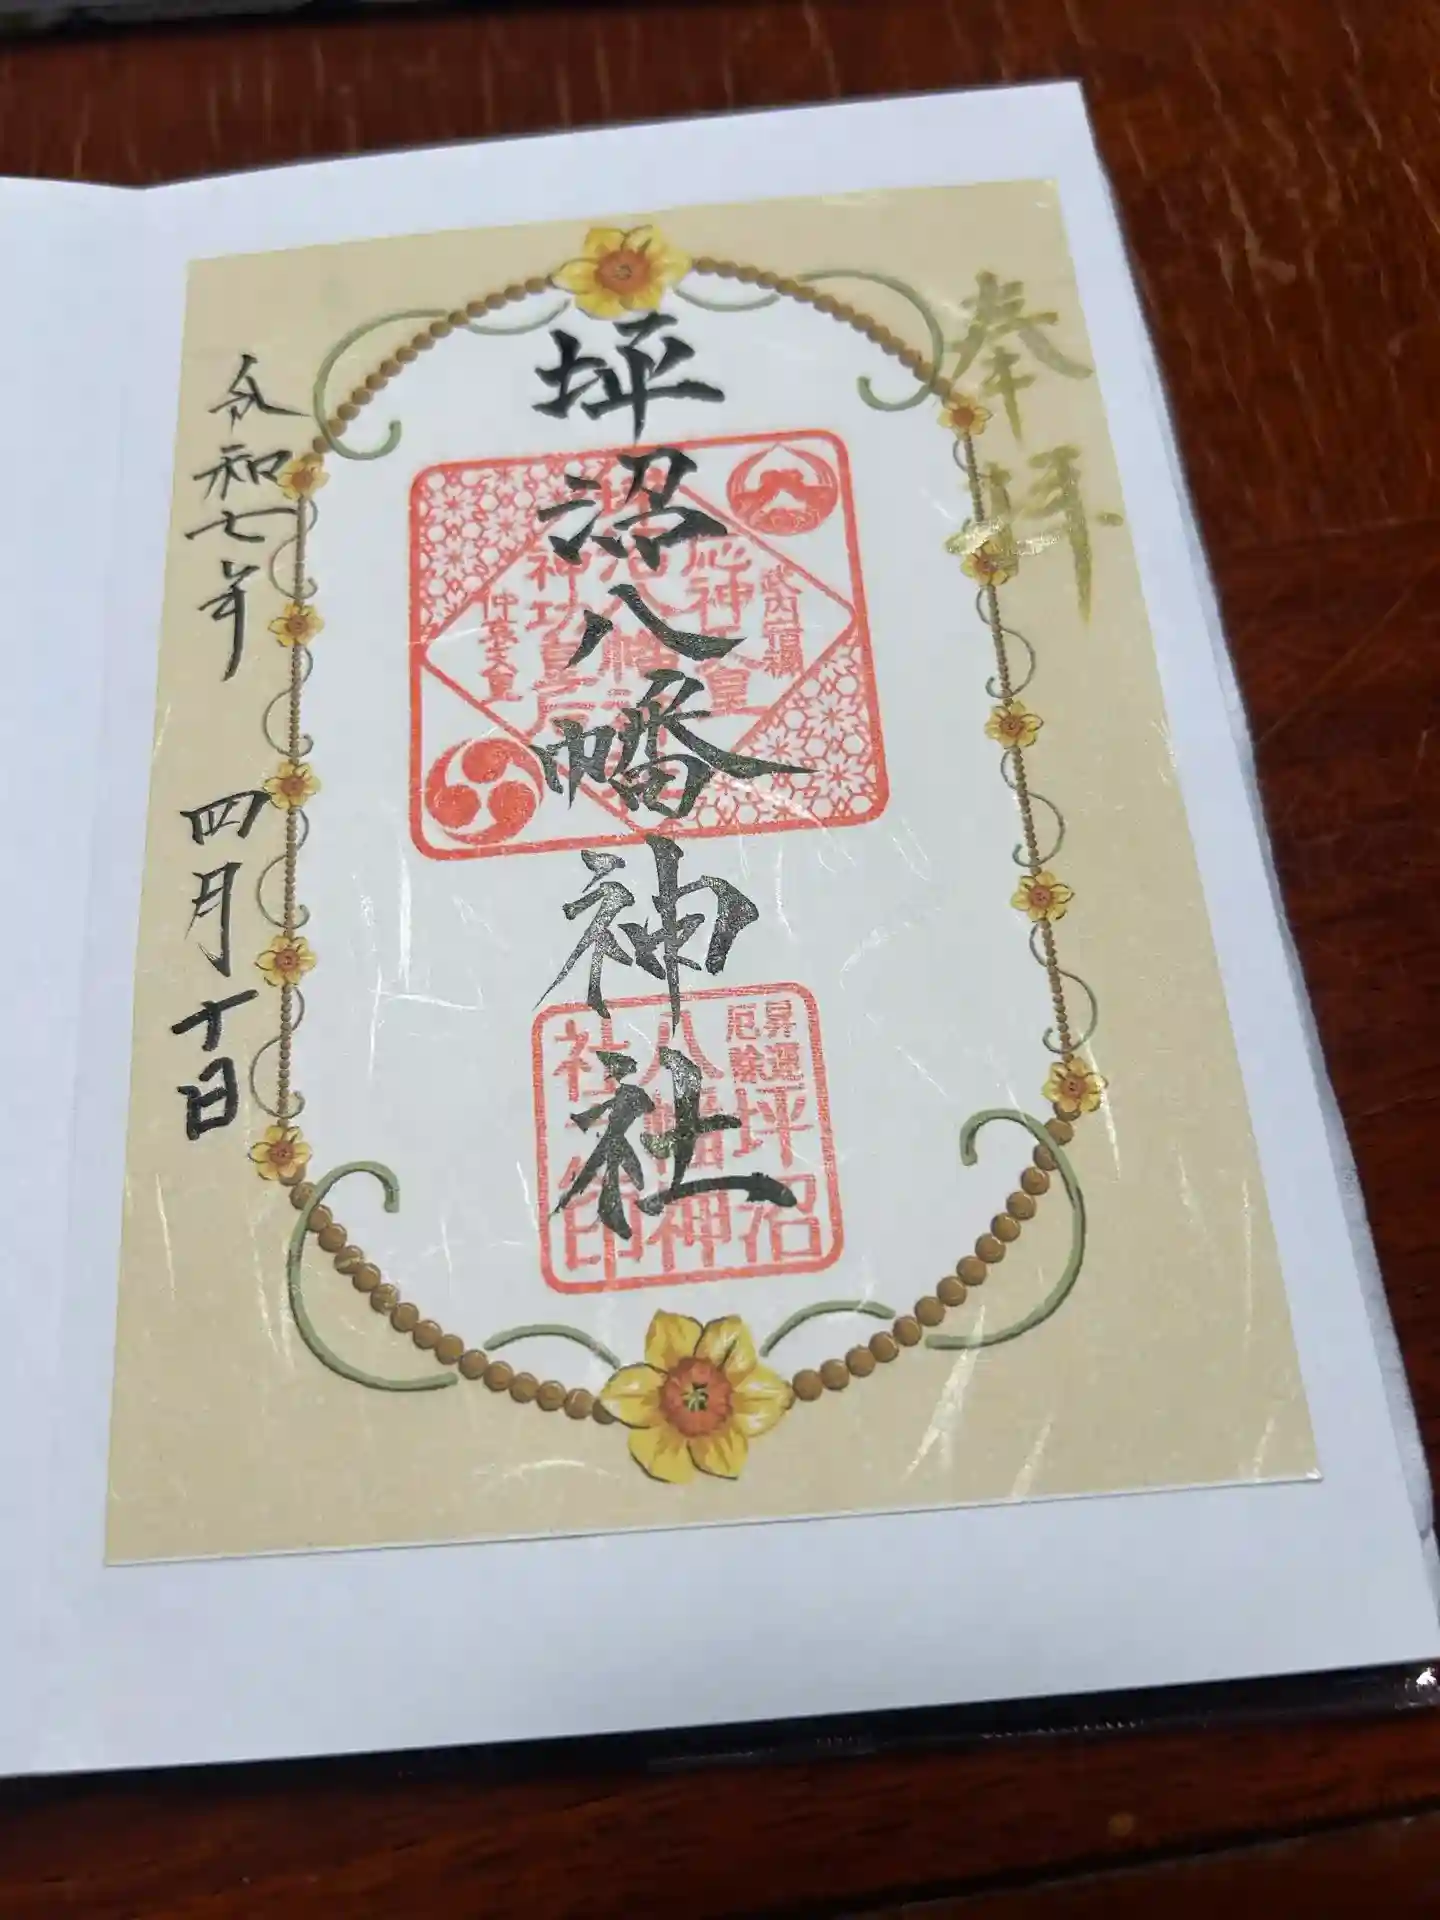 奉拝
坪沼八幡神社
令和七年 四月十日
武内宿禰
応神天皇
坪沼八幡神社
神功皇后
仲哀天皇
昇運
厄除
坪沼
八幡神
社之印